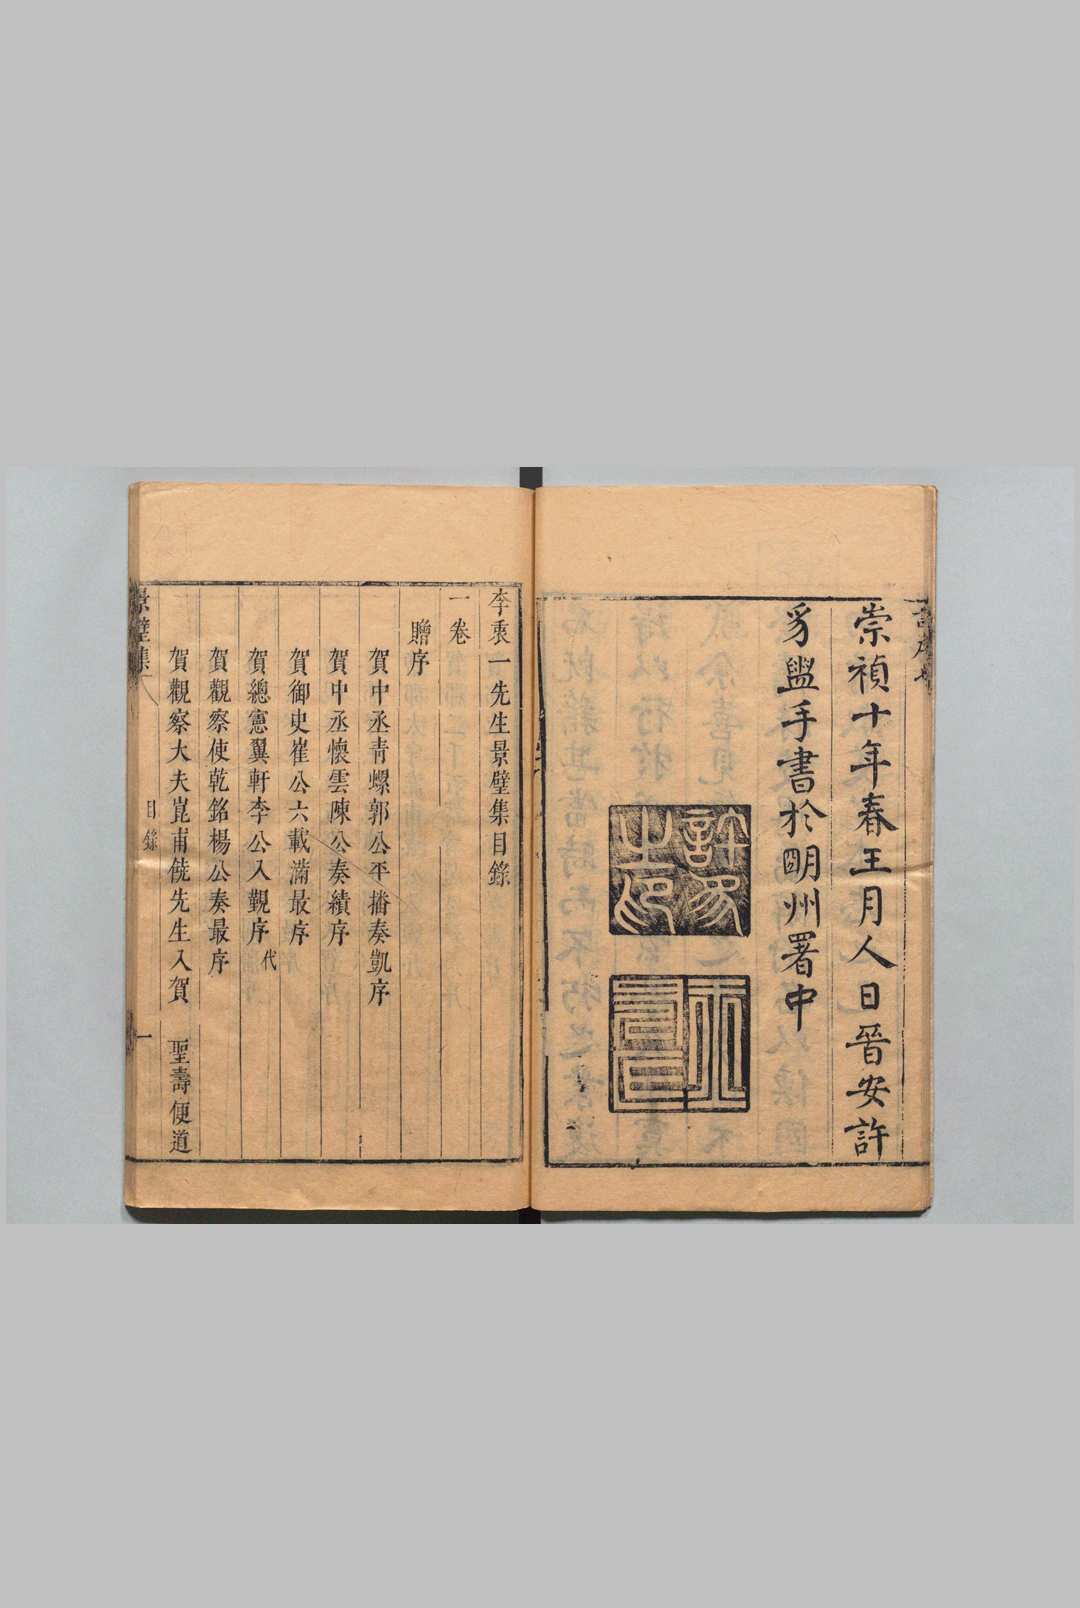 崇禎十年春王月人日晉安許
豸盥手書於明州署中
許豸之印
李衷一先生景璧集目錄
一卷
贈序
賀中丞靑螺郭公平播奏凱序
賀中丞懷雲陳公奏績序
賀御史崔公六載滿最序
賀總憲翼軒李公入覲序 代
賀觀察使乾銘楊公奏最序
賀觀察大夫崑甫饒先生入賀 聖壽便道
景璧集 目錄 一